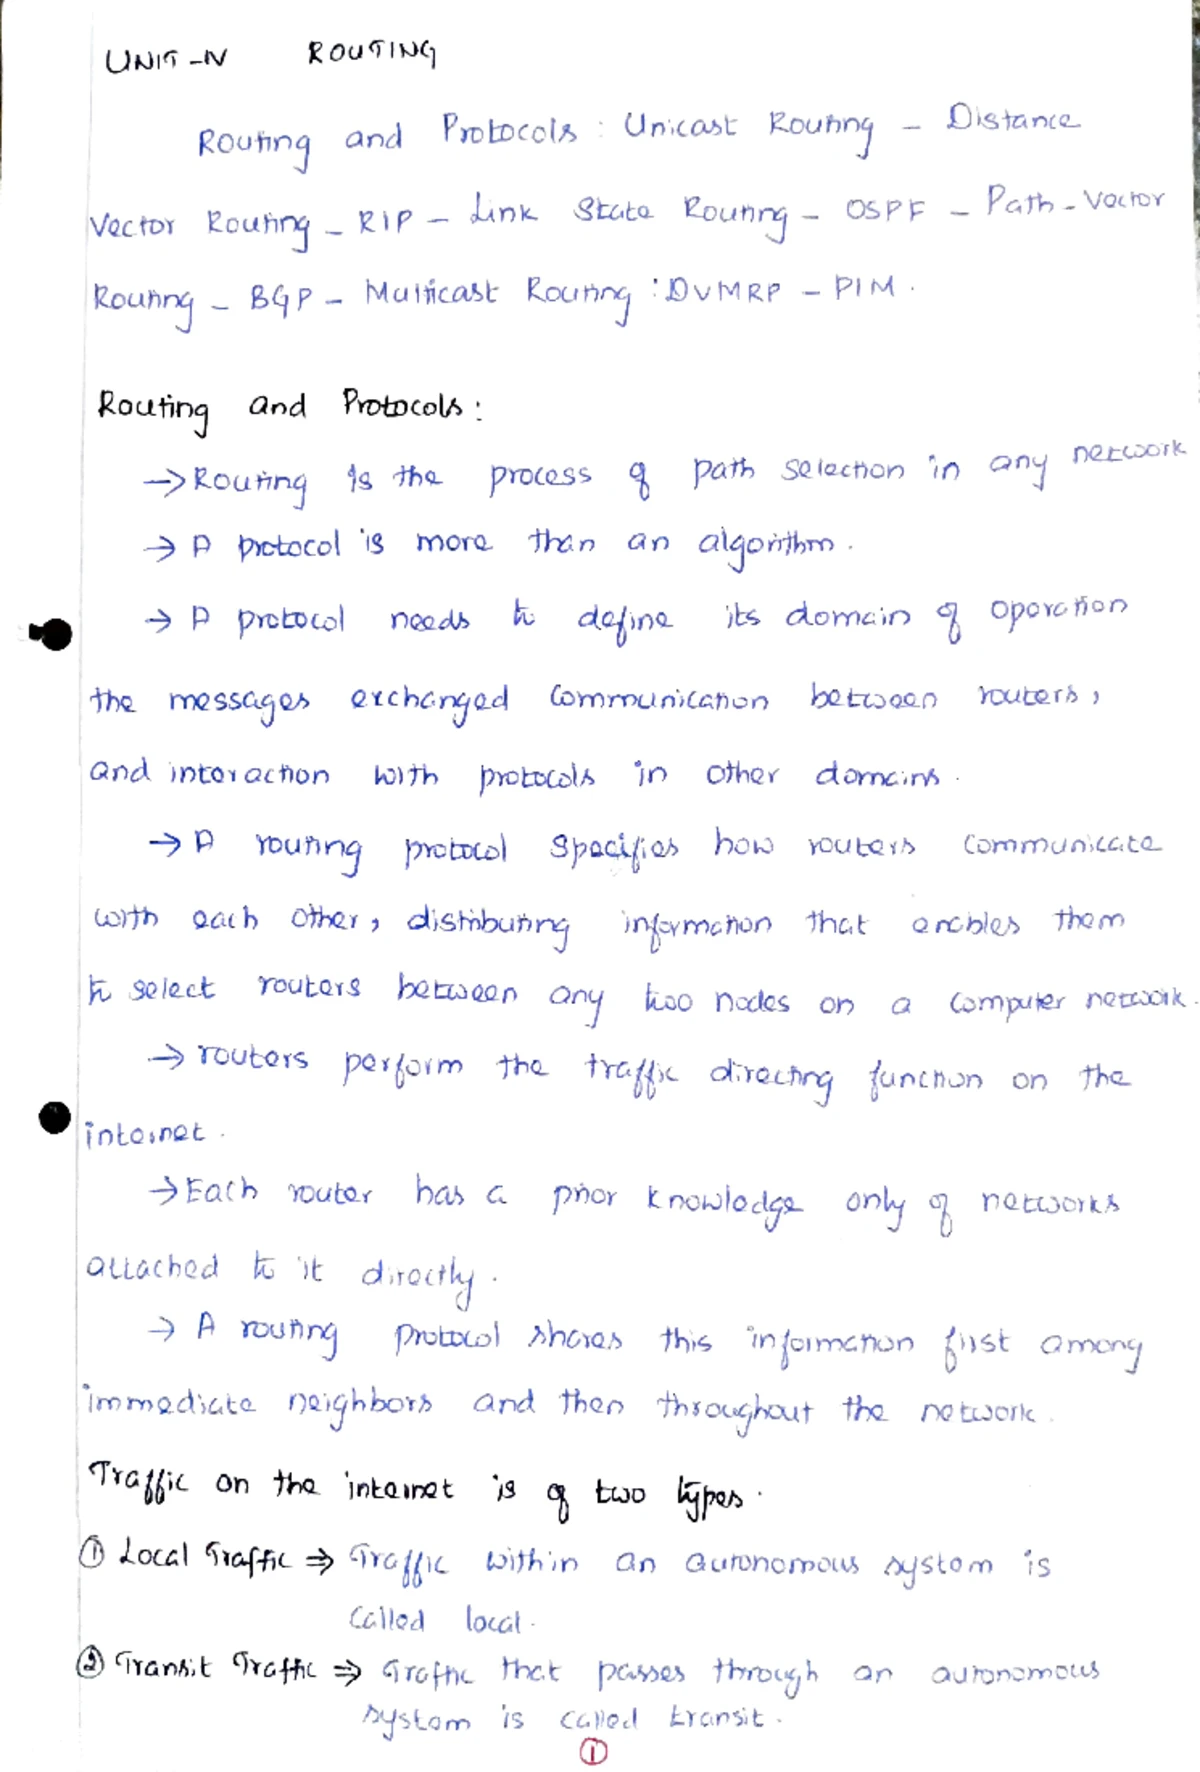 UNIT-IV ROUTING
Routing and Protocols : Unicast Routing - Distance
Vector Routing - RIP - Link State Routing - OSPF - Path-Vector
Routing - BGP - Multicast Routing : DVMRP - PIM.
Routing and Protocols :
→ Routing is the process of path selection in any network
→ A protocol is more than an algorithm.
→ A protocol needs to define its domain of operation
the messages exchanged communication between routers,
and interaction with protocols in other domains.
→ A routing protocol specifies how routers communicate
with each other, distributing information that enables them
to select routers between any two nodes on a computer network.
→ routers perform the traffic directing function on the
internet.
→ Each router has a prior knowledge only of networks
attached to it directly.
→ A routing protocol shares this information first among
immediate neighbors and then throughout the network.
Traffic on the internet is of two types.
① Local Traffic ⇒ Traffic within an autonomous system is
called local.
② Transit Traffic ⇒ Traffic that passes through an autonomous
system is called transit.
①